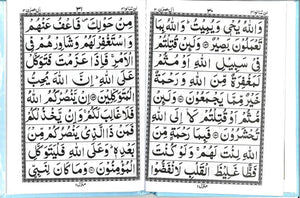 ٣٠
وَاللّٰهُ يُحْيٖ وَيُمِيْتُ وَاللّٰهُ بِمَا
تَعْمَلُوْنَ بَصِيْرٌ وَلَئِنْ قُتِلْتُمْ
فِيْ سَبِيْلِ اللّٰهِ اَوْ مُتُّمْ
لَمَغْفِرَةٌ مِّنَ اللّٰهِ وَرَحْمَةٌ
خَيْرٌ مِّمَّا يَجْمَعُوْنَ وَلَئِنْ
مُّتُّمْ اَوْ قُتِلْتُمْ لَاِالَى اللّٰهِ
تُحْشَرُوْنَ فَبِمَا رَحْمَةٍ مِّنَ
اللّٰهِ لِنْتَ لَهُمْ وَلَوْ كُنْتَ
فَظًّا غَلِيْظَ الْقَلْبِ لَانْفَضُّوْا
٣١
مِنْ حَوْلِكَ فَاعْفُ عَنْهُمْ
وَاسْتَغْفِرْ لَهُمْ وَشَاوِرْهُمْ فِي
الْاَمْرِ فَاِذَا عَزَمْتَ فَتَوَكَّلْ
عَلَى اللّٰهِ اِنَّ اللّٰهَ يُحِبُّ
الْمُتَوَكِّلِيْنَ اِنْ يَّنْصُرْكُمُ اللّٰهُ
فَلَا غَالِبَ لَكُمْ وَاِنْ يَّخْذُلْكُمْ
فَمَنْ ذَا الَّذِيْ يَنْصُرُكُمْ مِّنْ
بَعْدِهٖ وَعَلَى اللّٰهِ فَلْيَتَوَكَّلِ
الْمُؤْمِنُوْنَ وَمَا كَانَ لِنَبِيٍّ